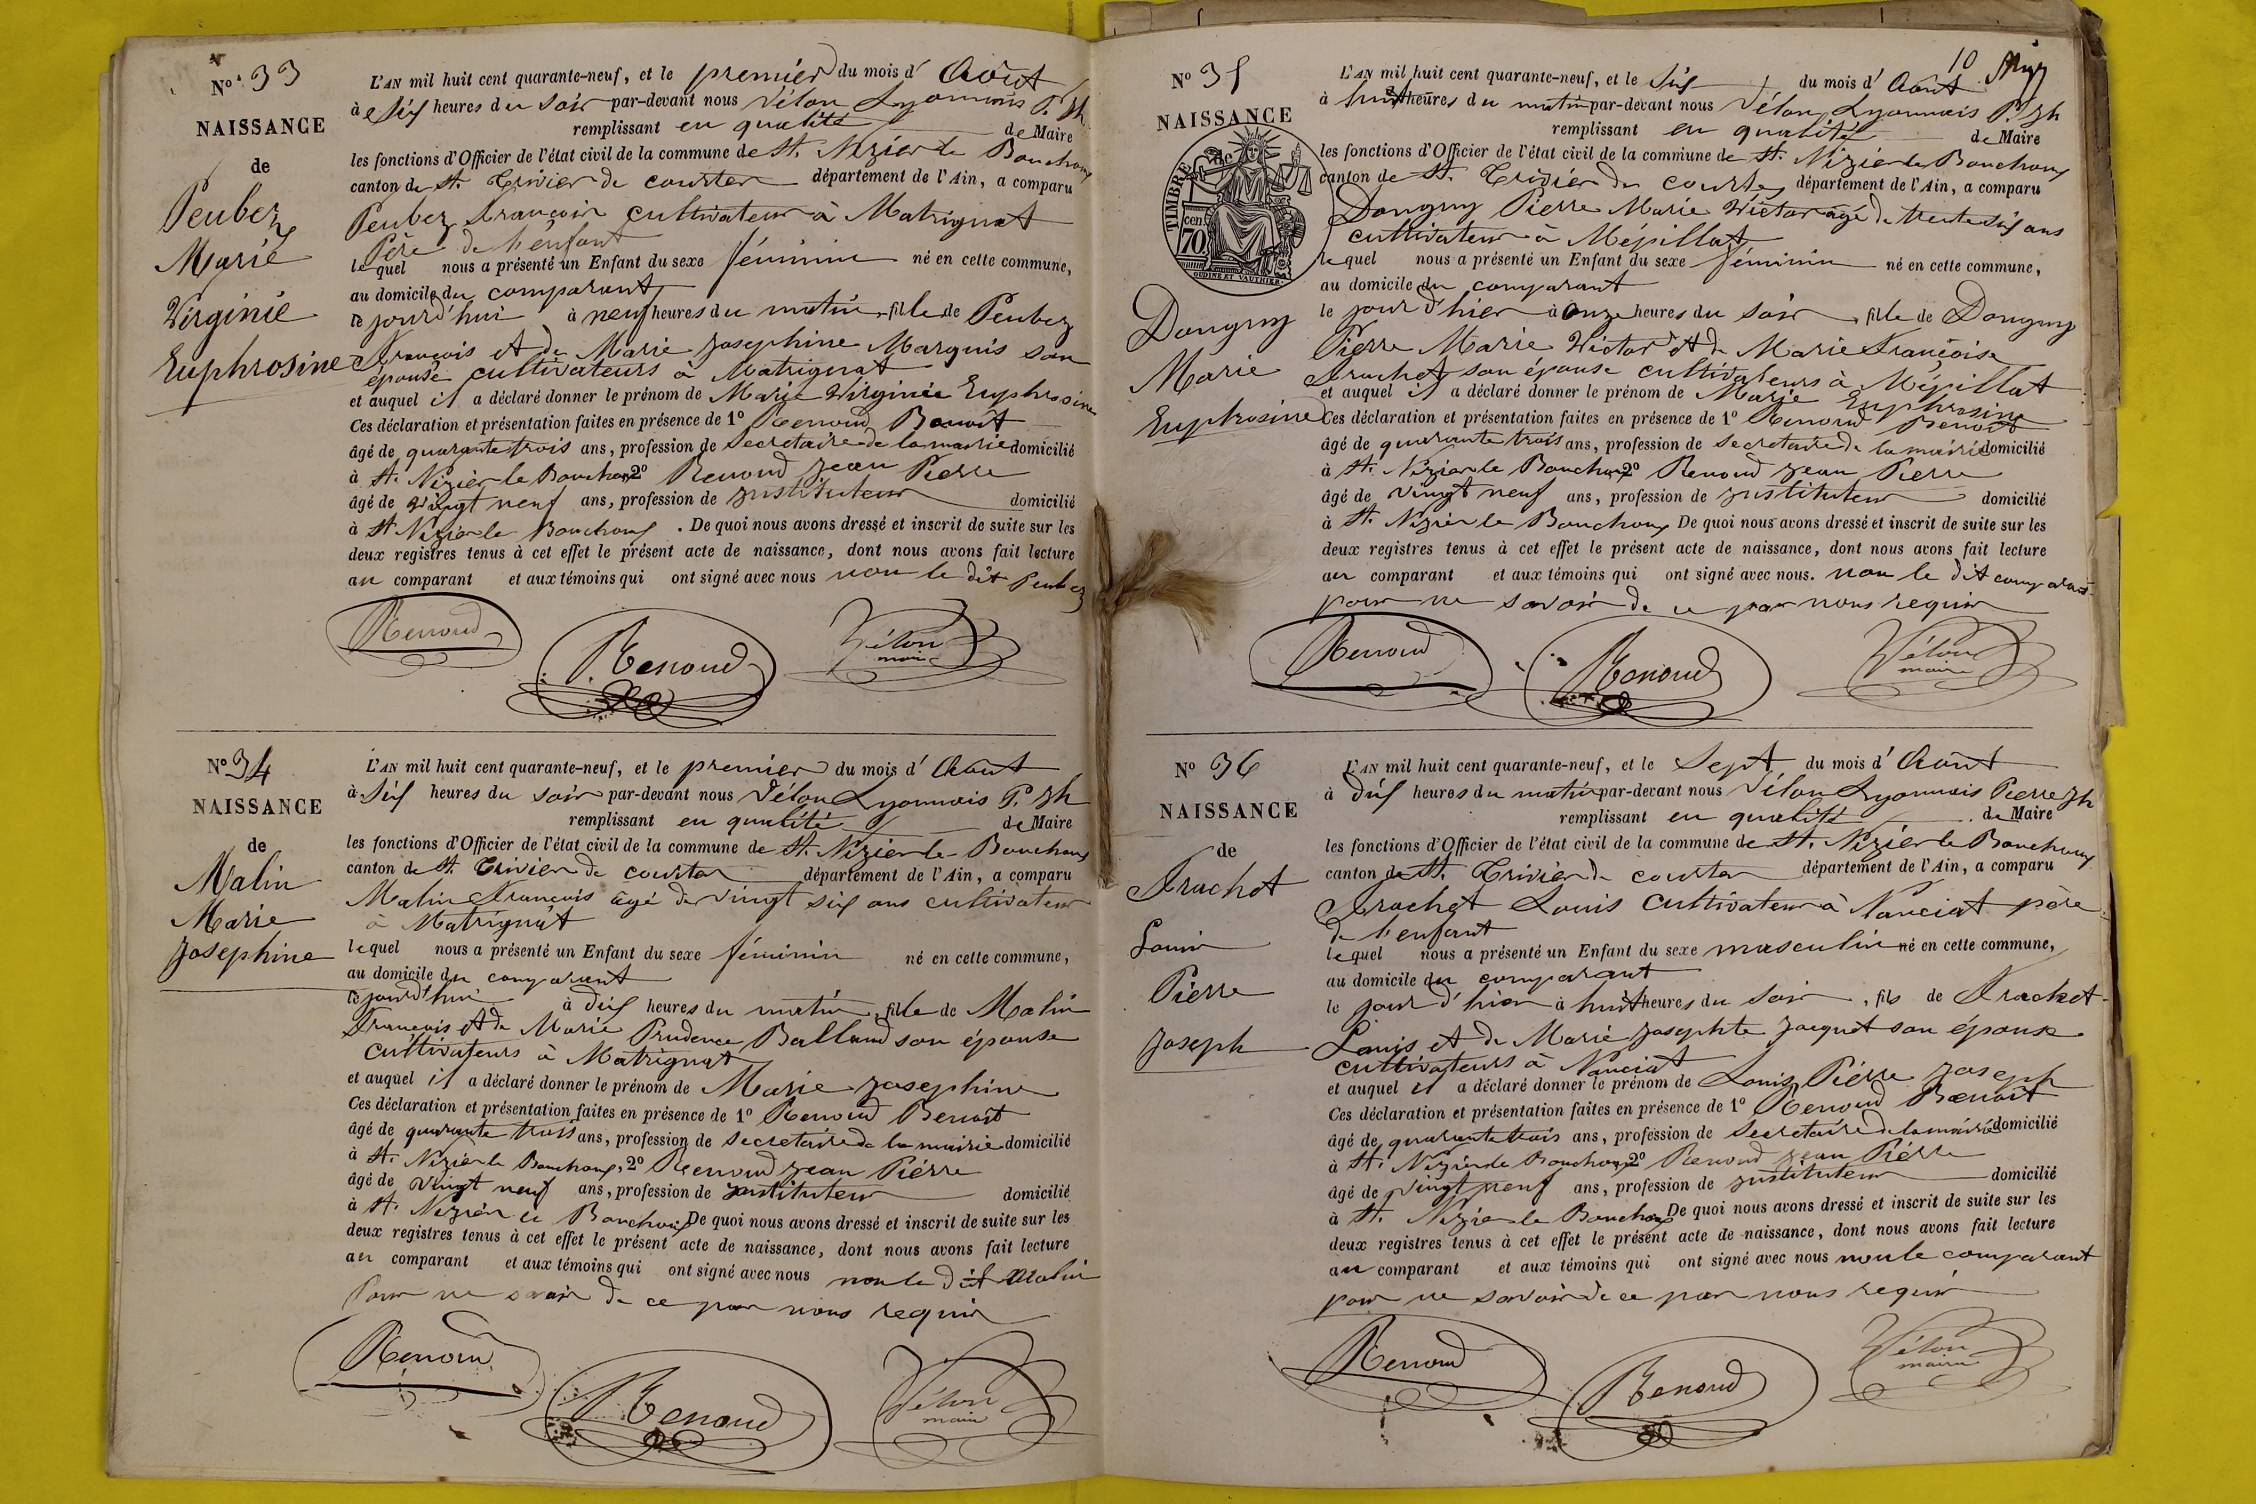 Nº 33
NAISSANCE
de
Peubez
Marie
Virginie
Euphrosine
L'AN mil huit cent quarante-neuf, et le premier du mois d' Août
à Six heures du soir par-devant nous Vélon Lyonnais P. Jh
remplissant en qualité de Maire
les fonctions d'Officier de l'état civil de la commune de St. Nizier le Bouchoux
canton de St. Trivier de courtes département de l'Ain, a comparu
Peubez François cultivateur à Matrignat
Père de l'enfant
lequel nous a présenté un Enfant du sexe féminin né en cette commune,
au domicile du comparant
ce jourd'hui à neuf heures du matin, fille de Peubez
François et de Marie Josephine Marquis son
épouse cultivateurs à Matrignat
et auquel il a déclaré donner le prénom de Marie Virginie Euphrosine
Ces déclaration et présentation faites en présence de 1º Renoud Benoît
âgé de quarante trois ans, profession de secretaire de la mairie domicilié
à St. Nizier le Bouchoux 2º Renoud Jean Pierre
âgé de vingt neuf ans, profession de Instituteur domicilié
à St Nizier le Bouchoux. De quoi nous avons dressé et inscrit de suite sur les
deux registres tenus à cet effet le présent acte de naissance, dont nous avons fait lecture
au comparant et aux témoins qui ont signé avec nous non le dit Peubez
Renoud
Renoud
Vélon
maire
Nº 34
NAISSANCE
de
Malin
Marie
Josephine
L'AN mil huit cent quarante-neuf, et le premier du mois d' Août
à Six heures du soir par-devant nous Vélon Lyonnais P. Jh
remplissant en qualité de Maire
les fonctions d'Officier de l'état civil de la commune de St. Nizier le Bouchoux
canton de St. Trivier de courtes département de l'Ain, a comparu
Malin François âgé de vingt six ans cultivateur
à Matrignat
lequel nous a présenté un Enfant du sexe féminin né en cette commune,
au domicile du comparant
ce jourd'hui à dix heures du matin, fille de Malin
François et de Marie Prudence Balland son épouse
cultivateurs à Matrignat
et auquel il a déclaré donner le prénom de Marie Josephine
Ces déclaration et présentation faites en présence de 1º Renoud Benoît
âgé de quarante trois ans, profession de secretaire de la mairie domicilié
à St. Nizier le Bouchoux, 2º Renoud Jean Pierre
âgé de vingt neuf ans, profession de instituteur domicilié
à St. Nizier le Bouchoux De quoi nous avons dressé et inscrit de suite sur les
deux registres tenus à cet effet le présent acte de naissance, dont nous avons fait lecture
au comparant et aux témoins qui ont signé avec nous non le dit Malin
Pour ne savoir de ce par nous requis
Renoud
Renoud
Vélon
maire
10
Nº 35
NAISSANCE
de
TIMBRE
70 cen
OUDINE ET VAUTHIER.
Dongny
Marie
Euphrosine
L'AN mil huit cent quarante-neuf, et le Six du mois d' Août
à huit heures du matin par-devant nous Vélon Lyonnais P. Jh
remplissant en qualité de Maire
les fonctions d'Officier de l'état civil de la commune de St. Nizier le Bouchoux
canton de St. Trivier de courtes département de l'Ain, a comparu
Dongny Pierre Marie Victor âgé de trente six ans
cultivateur à Mépillat
lequel nous a présenté un Enfant du sexe féminin né en cette commune,
au domicile du comparant
le jour d'hier à onze heures du soir, fille de Dongny
Pierre Marie Victor et de Marie Françoise
Frachet son épouse cultivateurs à Mépillat
et auquel il a déclaré donner le prénom de Marie Euphrosine
Ces déclaration et présentation faites en présence de 1º Renoud Benoît
âgé de quarante trois ans, profession de secretaire de la mairie domicilié
à St. Nizier le Bouchoux 2º Renoud Jean Pierre
âgé de vingt neuf ans, profession de Instituteur domicilié
à St. Nizier le Bouchoux De quoi nous avons dressé et inscrit de suite sur les
deux registres tenus à cet effet le présent acte de naissance, dont nous avons fait lecture
au comparant et aux témoins qui ont signé avec nous. non le dit comparant
pour ne savoir de ce par nous requis
Renoud
Renoud
Vélon
maire
Nº 36
NAISSANCE
de
Frachet
Louis
Pierre
Joseph
L'AN mil huit cent quarante-neuf, et le Sept du mois d' Août
à dix heures du matin par-devant nous Vélon Lyonnais Pierre Jh
remplissant en qualité de Maire
les fonctions d'Officier de l'état civil de la commune de St. Nizier le Bouchoux
canton de St. Trivier de courtes département de l'Ain, a comparu
Frachet Louis cultivateur à Nanciat père
de l'enfant
lequel nous a présenté un Enfant du sexe masculin né en cette commune,
au domicile du comparant
le jour d'hier à huit heures du soir, fils de Frachet
Louis et de Marie Josephte Jacquet son épouse
cultivateurs à Nanciat
et auquel il a déclaré donner le prénom de Louis Pierre Joseph
Ces déclaration et présentation faites en présence de 1º Renoud Benoît
âgé de quarante trois ans, profession de Secretaire de la mairie domicilié
à St. Nizier le Bouchoux 2º Renoud Jean Pierre
âgé de vingt neuf ans, profession de instituteur domicilié
à St. Nizier le Bouchoux De quoi nous avons dressé et inscrit de suite sur les
deux registres tenus à cet effet le présent acte de naissance, dont nous avons fait lecture
au comparant et aux témoins qui ont signé avec nous non le comparant
pour ne savoir de ce par nous requis
Renoud
Renoud
Vélon
maire